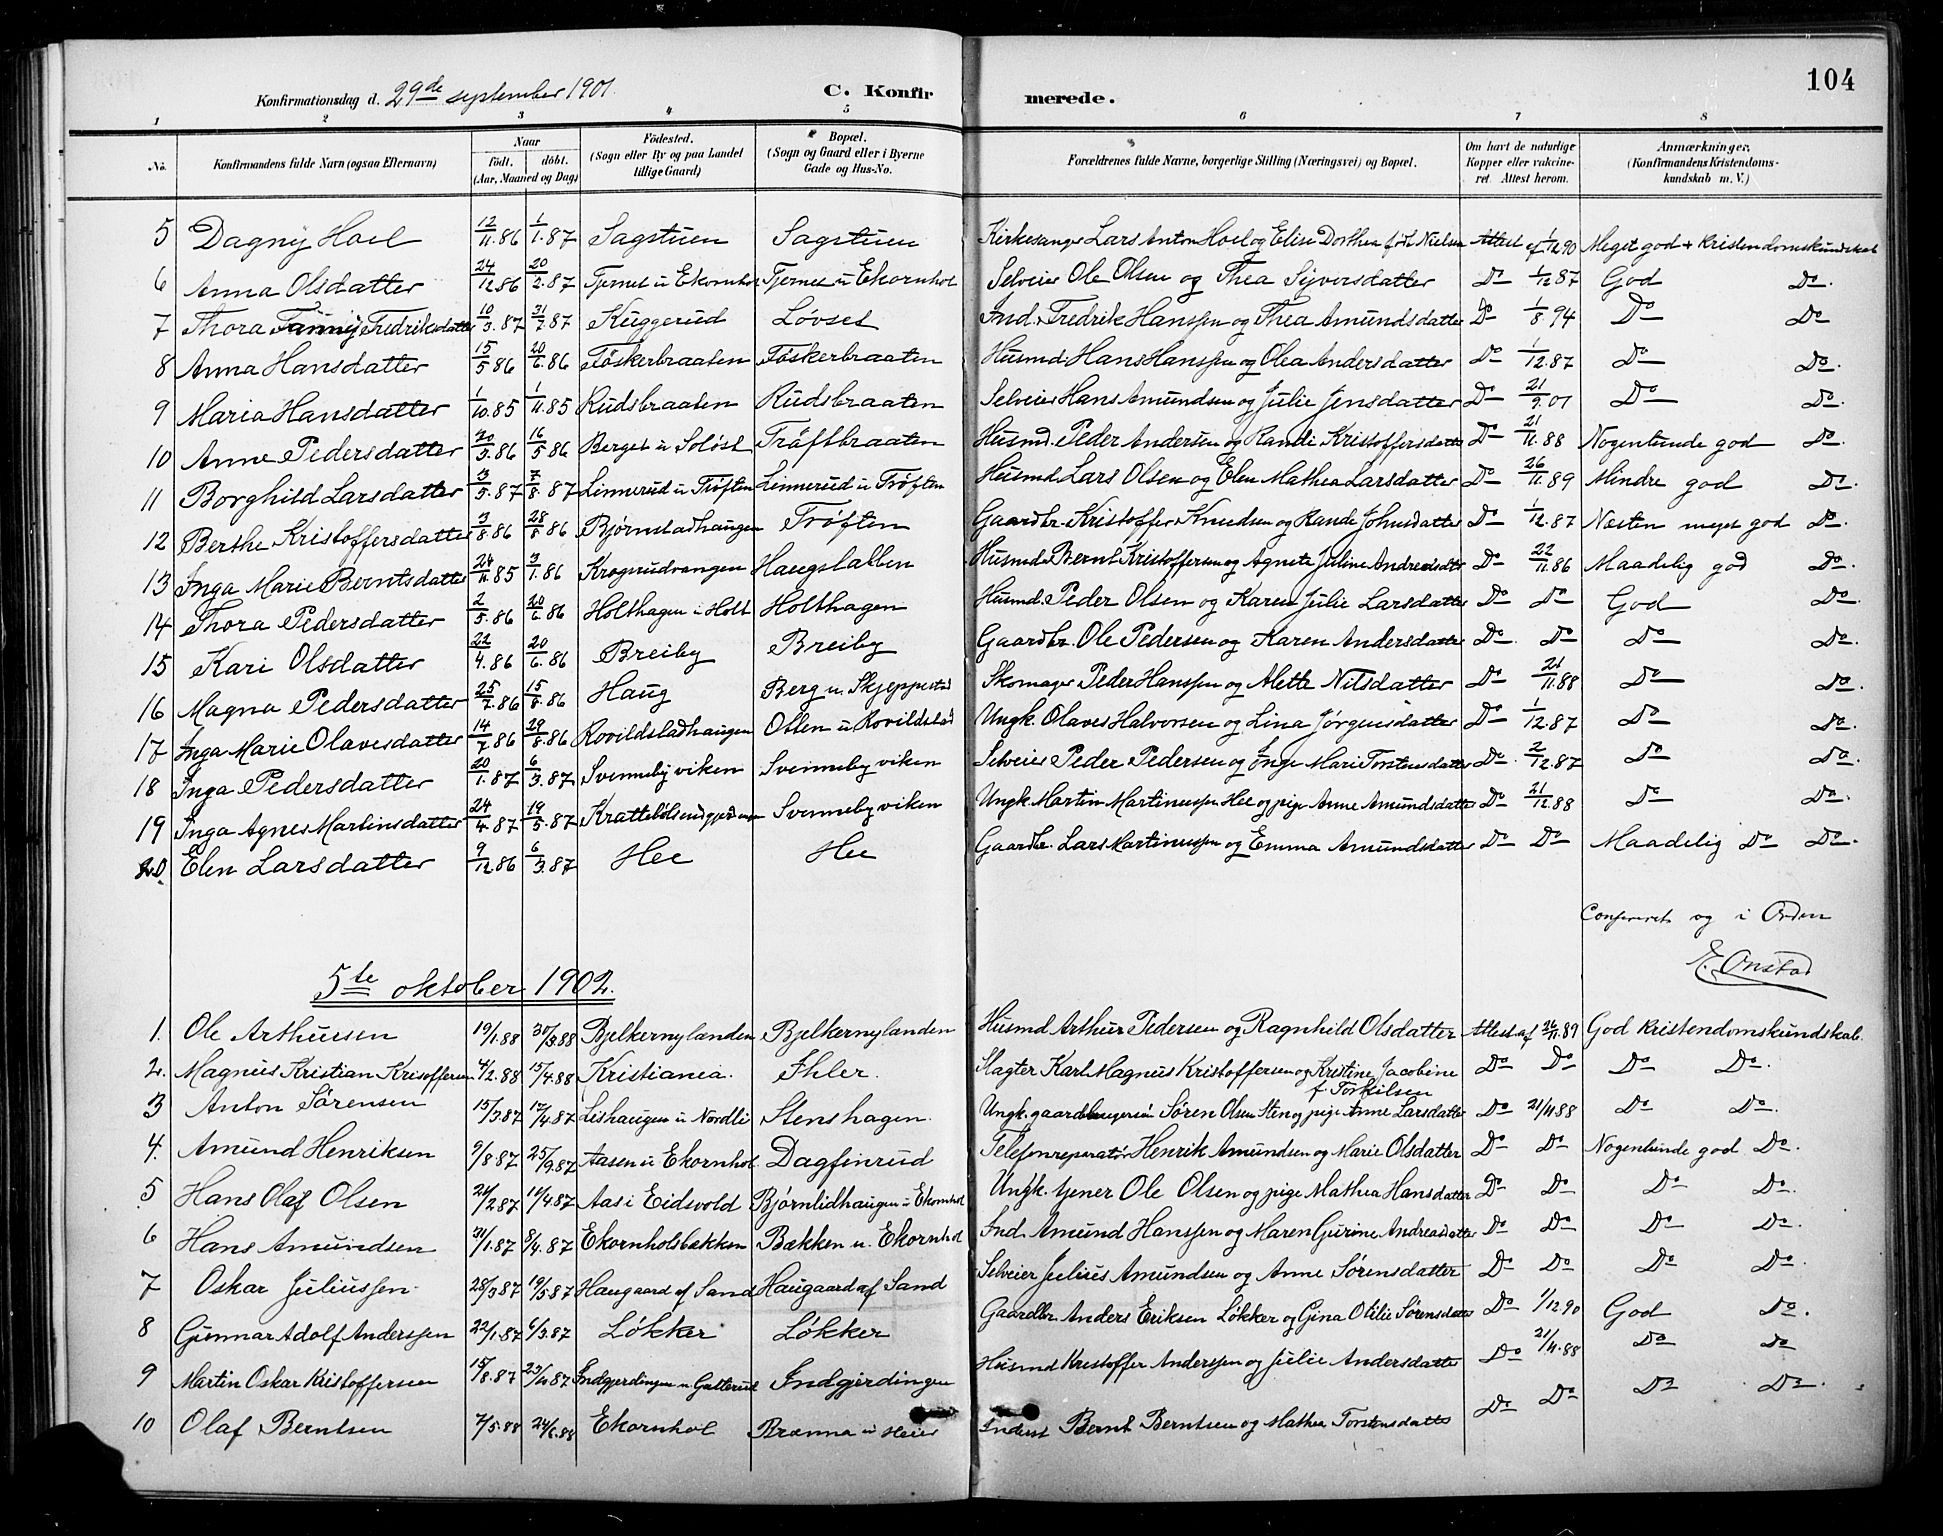 104
Konfirmationsdag d. 29de september 1901. C. Konfirmerede.
1 2 3 4 5 6 7 8
No. Konfirmandens fulde Navn (ogsaa Efternavn) Naar født. døbt. (Aar, Maaned og Dag) Födested. (Sogn eller By og paa Landet tillige Gaard) Bopæl. (Sogn og Gaard eller i Byerne Gade og Hus-No. Forældrenes fulde Navne, borgerlige Stilling (Næringsvei) og Bopæl. Om havt de naturlige Kopper eller vakcineret. Attest herom. Anmærkninger. (Konfirmandens Kristendomskundskab m. V.)
5 Dagny Hoel 12/11.86 1/1.87 Sagstuen Sagstuen Kirkesanger Lars Anton Hoel og Elise Dorthea født Nielsen Attest af 1/12 90 Meget god + Kristendomskundskab
6 Anna Olsdatter 24/12.86 20/2.87 Tjernet u Ekornhol Tjernet u Ekornhol Selveier Ole Olsen og Thea Syversdatter Do 1/12 87 God Do.
7 Thora Fanny Fredriksdatter 10/3.87 31/7.87 Kuggerud Løvset Ind. Fredrik Hanssen og Thea Amundsdatter Do 1/8. 94 Do Do
8 Anna Hansdatter 15/5 86 20/6.86 Føskerbraaten Føskerbraaten Husmd. Hans Hanssen og Olea Andersdatter Do 1/12.87 Do Do.
9 Maria Hansdatter 1/10.85 1/11.85 Rudsbraaten Rudsbraaten Selveier Hans Amundsen og Julie Jensdatter Do 21/9.01 Do Do.
10 Anne Pedersdatter 20/3.86 16/5 86 Berget u Soløst Trøftbraaten Husmd. Peder Andersen og Randi Kristoffersdatter Do 21/11.88 Nogenlunde god Do.
11 Borghild Larsdatter 3/5.87 7/8.87 Linnerud u Trøften Linnerud u Trøften Husmd. Lars Olsen og Elen Mathea Larsdatter Do 26/11.89 Mindre god Do.
12 Berthe Kristoffersdatter 3/8.86 28/8.86 Bjørnstadhaugen Trøften Gaardbr. Kristoffer Knudsen og Rande Johnsdatter Do 1/12.87 Næsten meget god Do.
13 Inga Marie Berntsdatter 24/11.85 3/1.86 Krogsrudvangen Haugslakken Husmd. Bernt Kristoffersen og Agnete Juline Andreasdtr Do 22/11.86 Maadelig god Do.
14 Thora Pedersdatter 2/5.86 20/6.86 Holthagen i Holt Holthagen Husmd. Peder Olsen og Karen Julie Larsdatter Do Do God Do.
15 Kari Olsdatter 22/4.86 20/6.86 Breiby Breiby Gaardbr. Ole Pedersen og Karen Andersdatter Do. Do Do Do.
16 Magna Pedersdatter 25/7.86 15/8.86 Haug Berg u. Skjeppestad Skomager Peder Hanssen og Alette Nilsdatter Do 21/11.88 Do Do.
17 Inga Marie Olavesdatter 14/7 86 29/8.86 Rovildstadhaugen Osten u Rovildstad Ungk. Olaves Halvorsen og Lina Jørgensdatter Do 1/12.87 Do Do.
18 Inga Pedersdatter 20/1.87 6/3.87 Svenneby viken Svenneby viken Selveier Peder Pedersen og Inge Marie Torstensdatter Do. 2/12.87 Do Do.
19 Inga Agnes Martinsdatter 24/4.87 19/5.87 Krattebølsindgjerdingen Svenneby viken Ungk. Martin Martinussen Hee og pige Anne Amundsdatter Do 21/12.88 Do Do.
20 Elen Larsdatter 9/12.86 6/3.87 Hee Hee Gaardbr. Lars Martinussen og Emma Amundsdatter Do Do Maadelig Do Do.
Confereret og i Orden
E. Onstad
5te oktober 1902.
1. Ole Arthursen 19/1.88 30/3.88 Bjelkernylanden Bjelkernylanden Husmd Arthur Pedersen og Ragnhild Olsdatter Attest af 26/11.89 God Kristendomskundskab.
2. Magnus Kristian Kristoffersen 4/2.88 15/4.88 Kristiania. Ihler. Slagter Karl Magnus Kristoffersen og Kristine Jacobine f. Torkilsen Do Do Do Do.
3 Anton Sørensen 15/3.87 17/4.87 Lishaugen u Nordli Stenshagen. Ungk. gaardbrugersøn Søren Olsen Sten og pige Anne Larsdatter Do 21/11 88 Do Do.
4. Amund Henriksen 9/8.87 25/9.87 Aasen u Ekornhol Dagfinrud Telefonreparatør Henrik Amundsen og Marie Olsdatter Do Do Nogenlunde god Do.
5 Hans Olaf Olsen 26/2.87 11/4.87 Aas i Eidsvold Bjørnlidhaugen u Ekornhol Ungk. tjener Ole Olsen og pige Mathea Hansdatter Do Do Do Do.
6 Hans Amundsen 31/1.87 8/4.87 Ekornholsbakken Bækken u. Ekornhol Ind. Amund Hanssen og Maren Gurine Andreasdatter Do Do Do Do.
7 Oskar Juliussen 28/3.87 19/5.87 Haugaard af Sand Haugaard af Sand Selveier Julius Amundsen og Anne Sørensdatter Do Do Do Do.
8 Gunnar Adolf Anderssen 22/1.87 6/3.87 Løkker Løkker Gaardbr. Anders Eriksen Løkker og Gina Otilie Sørensdatter Do 1/12 90 God Do.
9 Martin Oskar Kristoffersen 15/8.87 Indgjerdingen u Gulterud Indgjerdingen Husmd Kristoffer Anderssen og Julie Andersdatter Do 21/11.88 Do Do
10 Olaf Berntsen 7/5.88 24/6.88 Ekornhol Brænna u Heier Inderst Bernt Berntsen og Mathea Torstensdatter Do Do Do Do.